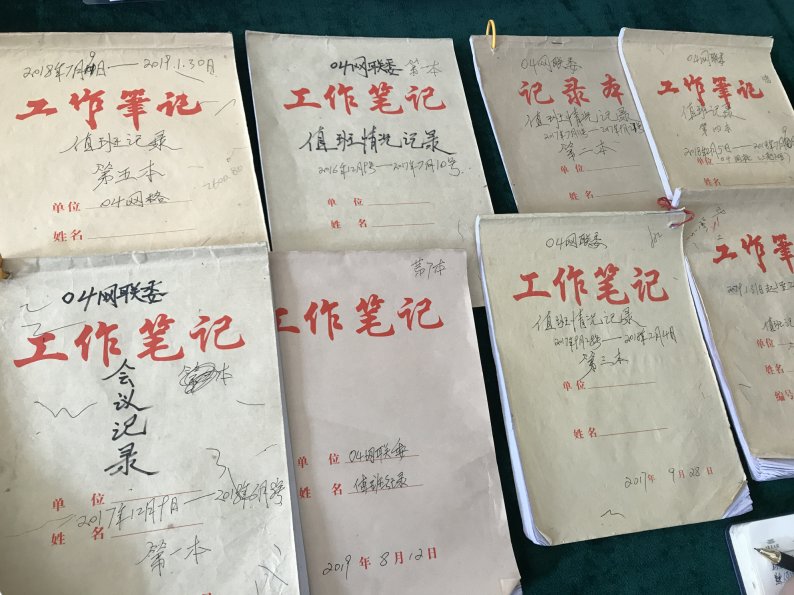 2018年7月9日——2019.1.30日
工作筆记
值班记录
第五本
2600.80
单位 04网格
姓名
04网联委 第一本
工作笔记
值班情况记录
2016年12月1号——2017年7月10号
单位
姓名
04网联委
记录本
值班情况记录
第二本
单位
姓名
04网联委
工作筆记
值班记录
第四本
单位
姓名
04网联委
工作笔记
会议记录
单位
2017年12月9日——2018年6月8号
姓名
第一本
第7本
工作笔记
单位 04网联委
姓名 值班记录
2019年8月12日
04网联委
工作笔记
值班情况记录
2017年9月28号——2018年2月4日
第三本
单位
姓名
2017年9月28日
工作筆
单位
姓名
编号